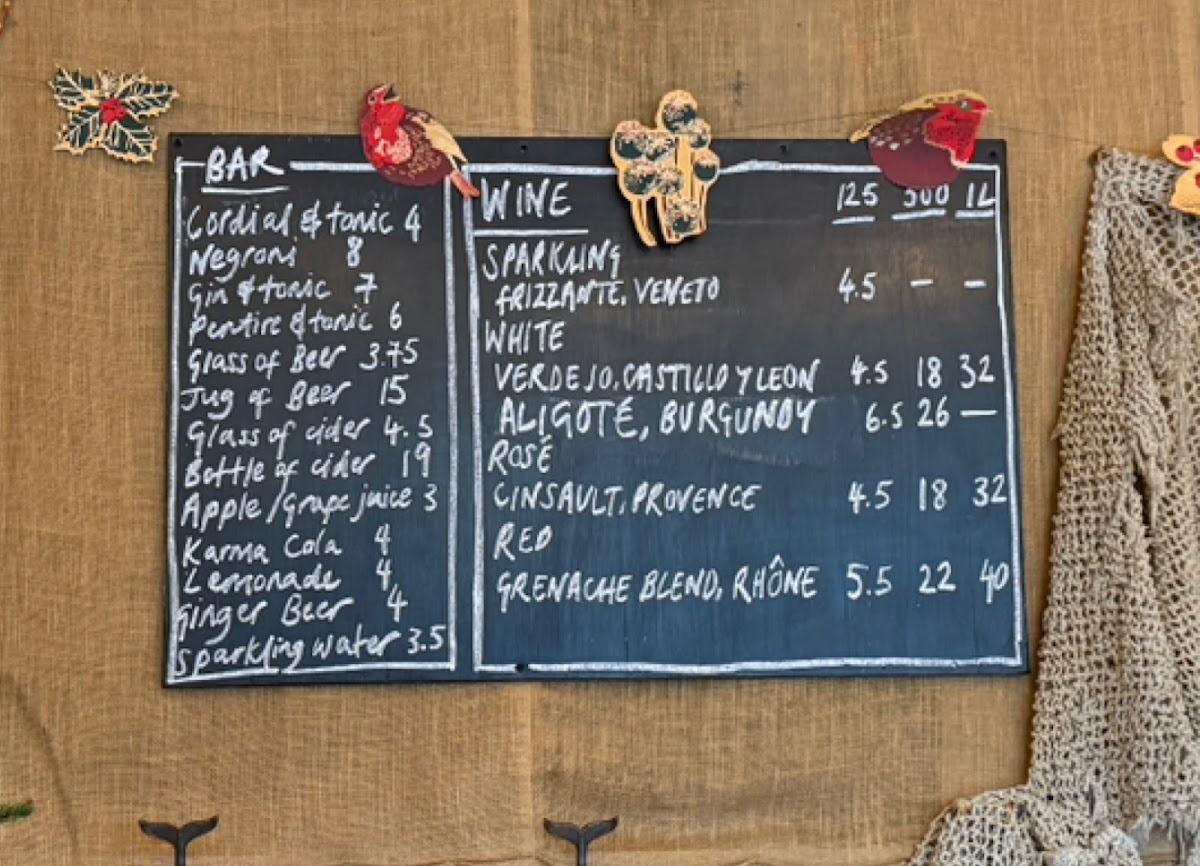 BAR
Cordial & tonic 4
Negroni 8
Gin & tonic 7
Pentire & tonic 6
Glass of Beer 3.75
Jug of Beer 15
Glass of cider 4.5
Bottle of cider 19
Apple/Grape juice 3
Karma Cola 4
Lemonade 4
Ginger Beer 4
Sparkling water 3.5
WINE 125 500 1L
SPARKLING
FRIZZANTE, VENETO 4.5 — —
WHITE
VERDEJO, CASTILLO Y LEON 4.5 18 32
ALIGOTÉ, BURGUNDY 6.5 26 —
ROSÉ
CINSAULT, PROVENCE 4.5 18 32
RED
GRENACHE BLEND, RHÔNE 5.5 22 40